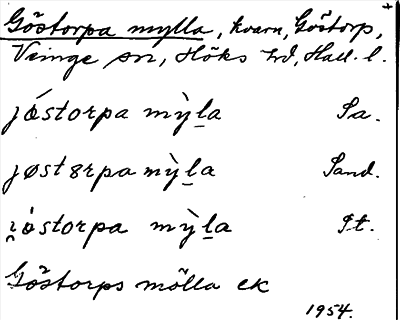 Göstorpa mylla, kvarn, Göstorp, +
Veinge sn, Höks hd, Hall. l.
jǿstorpa mỳl̲a Sa.
jøstɞrpa mỳl̲a Sand.
i̯ǿstorpa mỳl̲a St.
Göstorps mölla ek
1954.